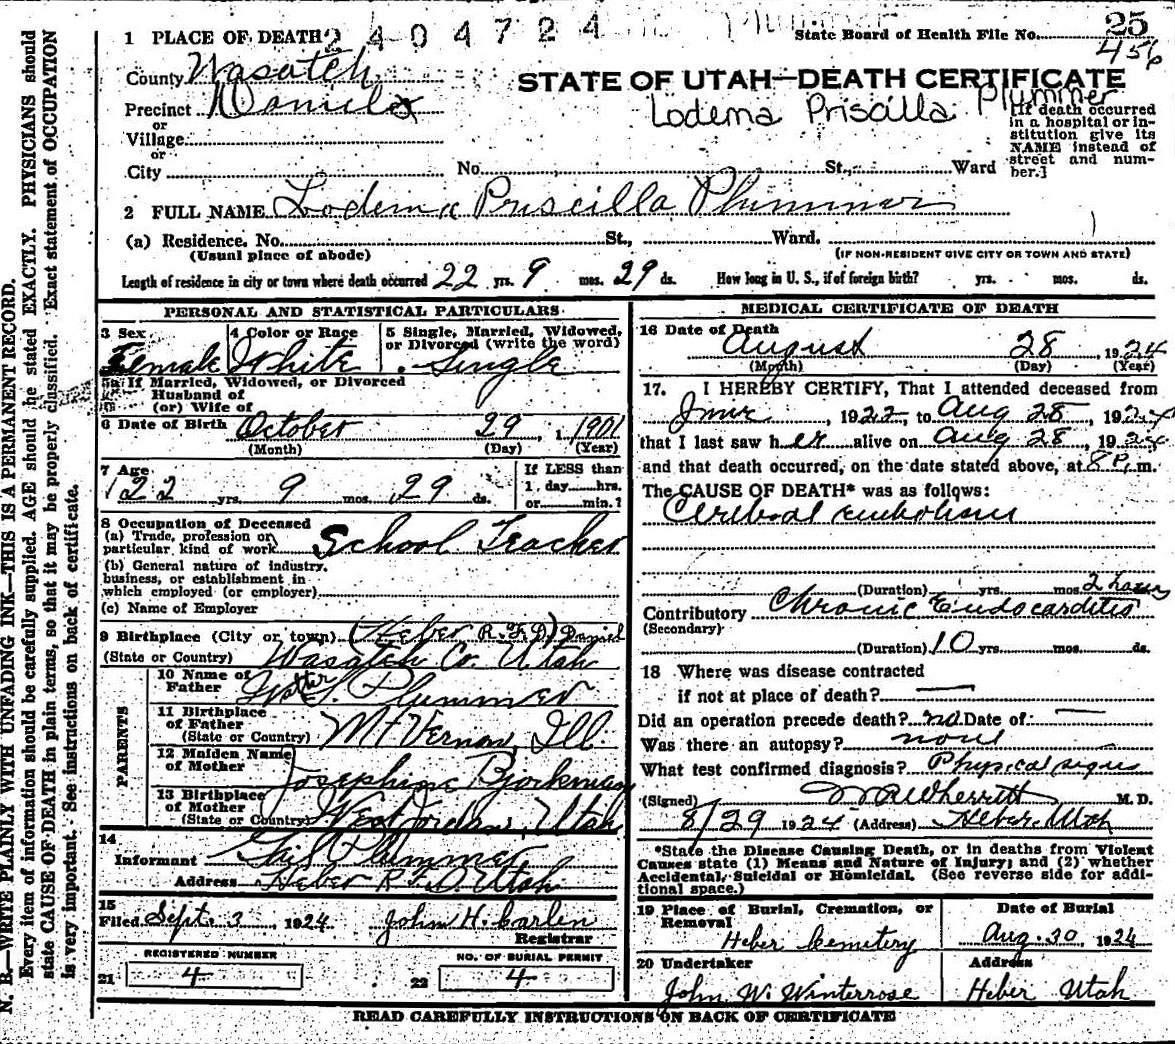 2404724 Plummer 25
1 PLACE OF DEATH State Board of Health File No. 456
County Wasatch STATE OF UTAH—DEATH CERTIFICATE
Precinct Daniels Lodema Priscilla Plummer
or
Village
or
City No. St., Ward
[If death occurred
in a hospital or in-
stitution give its
NAME instead of
street and num-
ber.]
2 FULL NAME Lodema Priscilla Plummer
(a) Residence. No. St., Ward.
(Usual place of abode) (IF NON-RESIDENT GIVE CITY OR TOWN AND STATE)
Length of residence in city or town where death occurred 22 yrs. 9 mos. 29 ds. How long in U. S., if of foreign birth? yrs. mos. ds.
PERSONAL AND STATISTICAL PARTICULARS
3 Sex 4 Color or Race 5 Single, Married, Widowed,
or Divorced (write the word)
Female White Single
5a If Married, Widowed, or Divorced
Husband of
(or) Wife of
6 Date of Birth October 29 1901
(Month) (Day) (Year)
7 Age If LESS than
22 yrs. 9 mos. 29 ds. 1 day hrs.
or min.?
8 Occupation of Deceased
(a) Trade, profession or
particular kind of work School Teacher
(b) General nature of industry,
business, or establishment in
which employed (or employer)
(c) Name of Employer
9 Birthplace (City or town) (Heber R.F.D.) Daniel
(State or Country) Wasatch Co. Utah
PARENTS
10 Name of
Father Walter S. Plummer
11 Birthplace
of Father
(State or Country) Mt Vernon, Ill.
12 Maiden Name
of Mother Josephine Bjorkman
13 Birthplace
of Mother
(State or Country) West Jordan, Utah
14
Informant Plummer
Address Heber R.F.D. Utah
15
Filed Sept. 3, 1924 John H. Carlen
Registrar
REGISTERED NUMBER NO. OF BURIAL PERMIT
21 4 22 4
MEDICAL CERTIFICATE OF DEATH
16 Date of Death
August 28, 1924
(Month) (Day) (Year)
17. I HEREBY CERTIFY, That I attended deceased from
June, 1922, to Aug 28, 1924
that I last saw her alive on Aug 28, 1924
and that death occurred, on the date stated above, at 8 P.m.
The CAUSE OF DEATH* was as follows:
Cerebral embolism
(Duration) yrs. mos. 2 hours
Contributory Chronic Endocarditis
(Secondary)
(Duration) 10 yrs. mos. ds.
18 Where was disease contracted
if not at place of death?
Did an operation precede death? no Date of:
Was there an autopsy? none
What test confirmed diagnosis? Physical signs
(Signed) Wherritt M. D.
8/29 1924 (Address) Heber, Utah
*State the Disease Causing Death, or in deaths from Violent
Causes state (1) Means and Nature of Injury; and (2) whether
Accidental, Suicidal or Homicidal. (See reverse side for addi-
tional space.)
19 Place of Burial, Cremation, or Date of Burial
Removal
Heber Cemetery Aug. 30, 1924
20 Undertaker Address
John W. Winterrose Heber Utah
READ CAREFULLY INSTRUCTIONS ON BACK OF CERTIFICATE
N. B.—WRITE PLAINLY WITH UNFADING INK—THIS IS A PERMANENT RECORD.
Every item of information should be carefully supplied. AGE should be stated EXACTLY. PHYSICIANS should
state CAUSE OF DEATH in plain terms, so that it may be properly classified. Exact statement of OCCUPATION
is very important. See instructions on back of certificate.